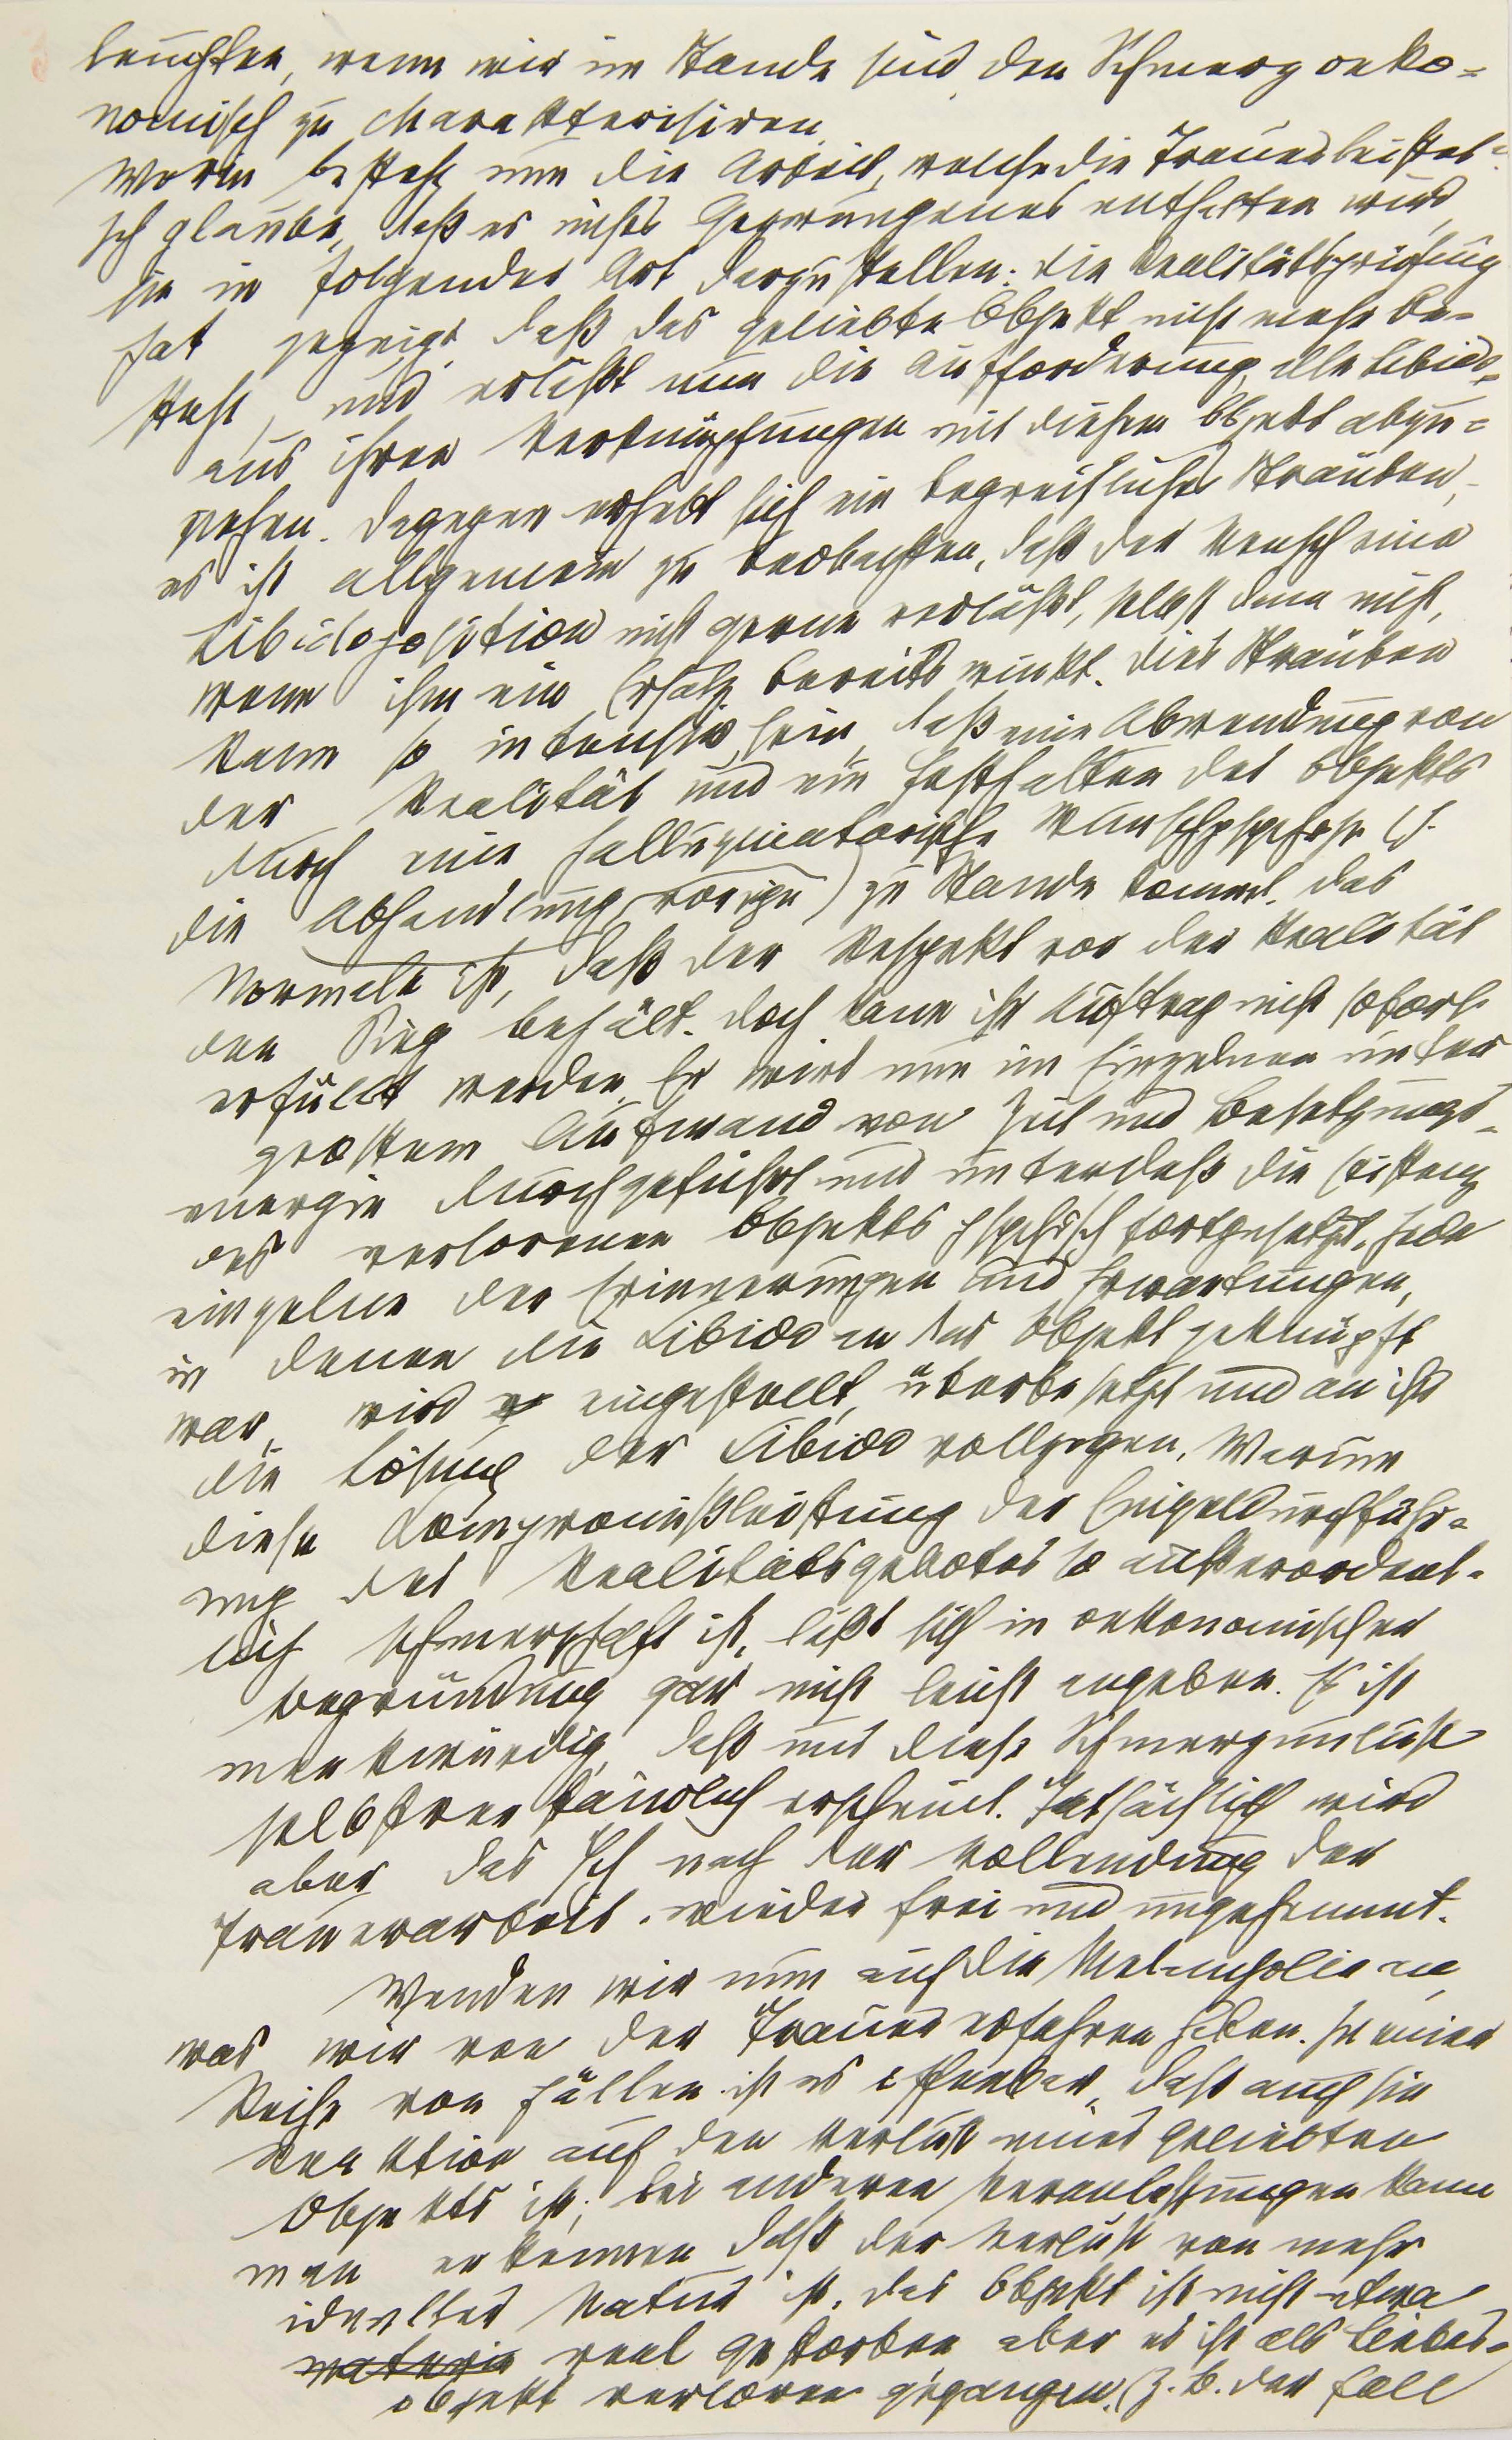 leuchten, wenn wir im Stande sind, den Schmerz oeko-
nomisch zu charakterisiren.
Worin besteht nun die Arbeit, welche die Trauer leistet?
Ich glaube, daß es nichts Gezwungenes enthalten wird,
sie in folgender Art darzustellen: die Realitätsprüfung
hat gezeigt, daß das geliebte Objekt nicht mehr be-
steht, und erläßt nun die Aufforderung, alle Libido
aus ihren Verknüpfungen mit diesem Objekt abzu-
ziehen. Dagegen erhebt sich ein begreifliches Sträuben,
es ist allgemein zu beobachten, daß der Mensch eine
Libidoposition nicht gerne verläßt, selbst dann nicht,
wenn ihm ein Ersatz bereits winkt. Dies Sträuben
kann so intensiv sein, daß eine Abwendung von
der Realität und ein Festhalten des Objekts
durch eine halluzinatorische Wunschpsychose (s.
die Abhandlung vorige) zu Stande kommt. Das
Normale ist, daß der Respekt vor der Realität
den Sieg behält. Doch kann ihr Auftrag nicht sofort
erfüllt werden. Er wird nun im Einzelnen unter
großem Aufwand von Zeit und Besetzungs-
energie durchgeführt und unterdeß die Existenz
des verlorenen Objekts psychisch fortgesetzt. Jede
einzelne der Erinnerungen und Erwartungen,
in denen die Libido an das Objekt geknüpft
war, wird eingestellt, überbesetzt und an ihr
die Lösung der Libido vollzogen. Warum
diese Kompromißleistung der Einzeldurchführ-
ung des Realitätsgebotes so außerordent-
lich schmerzhaft ist, läßt sich in oekonomischer
Begründung gar nicht leicht angeben. Es ist
merkwürdig, daß uns diese Schmerzunlust
selbstverständlich erscheint. Tatsächlich wird
aber das Ich nach der Vollendung der
Trauerarbeit wieder frei und ungehemmt.
Wenden wir nun auf die Melancholie an,
was wir von der Trauer erfahren haben. In einer
Reihe von Fällen ist es offenbar, daß auch sie
Reaktion auf den Verlust eines geliebten
Objekts ist; bei anderen Veranlassungen kann
man erkennen, daß der Verlust von mehr
ideeller Natur ist. Das Objekt ist nicht etwa
materie real gestorben, aber es ist als Liebes-
objekt verloren gegangen. (z. B. der Fall